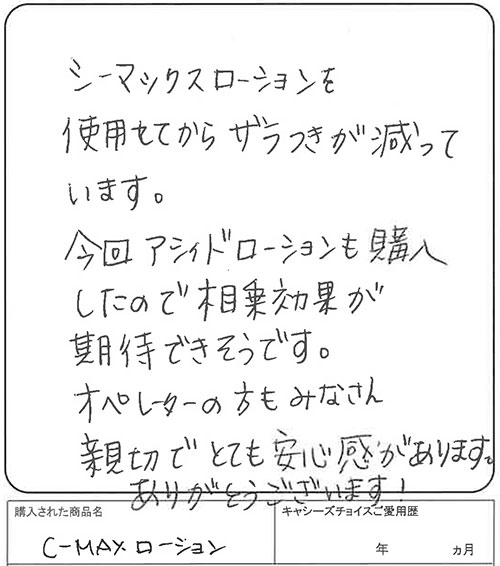 シーマックスローションを
使用せてからザラつきが減って
います。
今回アシィドローションも購入
したので相乗効果が
期待できそうです。
オペレーターの方もみなさん
親切でとても安心感があります。
ありがとうございます!
購入された商品名
キャシーズチョイスご愛用歴
C-MAXローション
年 ヵ月